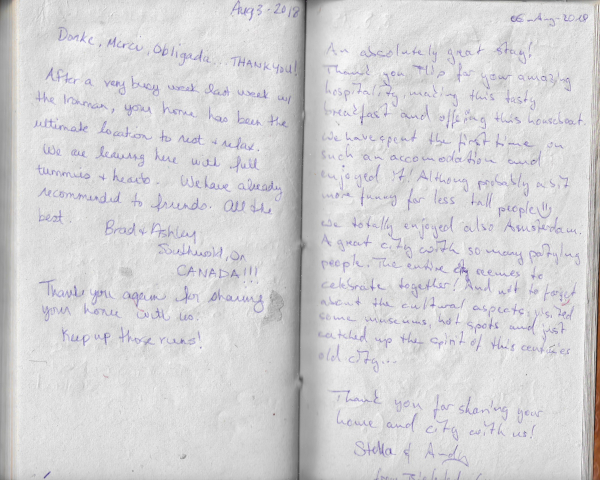 Aug 3-2018
Danke, Merci, Obligada... THANKYOU!
After a very busy week last week w/
the Ironman, your home has been the
ultimate location to rest & relax.
We are leaving here with full
tummies & hearts. We have already
recommended to friends. All the
best.
Brad & Ashley
Southwold, On
CANADA!!!
Thank you again for sharing
your home with us.
Keep up those runs!
05-Aug-2018
An absolutely great stay!
Thank you for your amazing
hospitality, making this tasty
breakfast and offering this houseboat.
We have spent the first time on
such an accomodation and
enjoyed it! Althoug probably a bit
more funny for less tall people
We totally enjoyed also Amsterdam.
A great city with so many partying
people. The entire city seemes to
celebrate together! And not to forget
about the cultural aspects: visited
some museums, hot spots and just
catched up the spirit of this centuries
old city...
Thank you for sharing your
home and city with us!
Stella & Andy
from